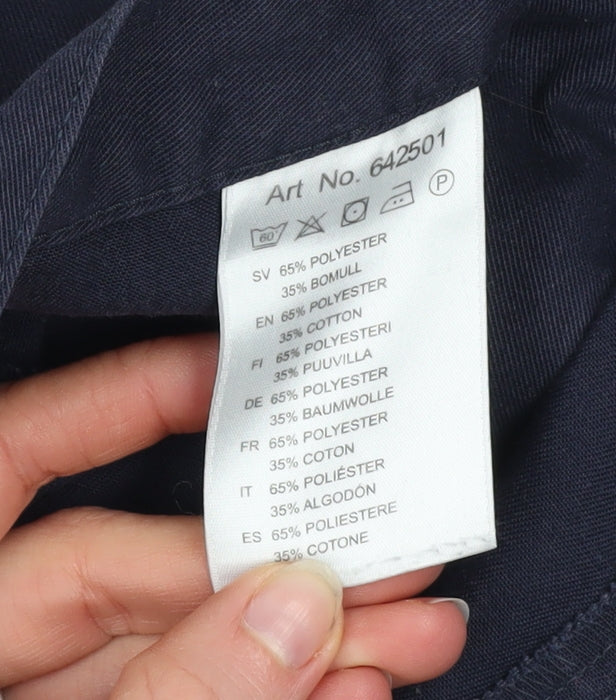 Art No. 642501
60 P
SV 65% POLYESTER
35% BOMULL
EN 65% POLYESTER
35% COTTON
FI 65% POLYESTERI
35% PUUVILLA
DE 65% POLYESTER
35% BAUMWOLLE
FR 65% POLYESTER
35% COTON
IT 65% POLIÉSTER
35% ALGODÓN
ES 65% POLIESTERE
35% COTONE